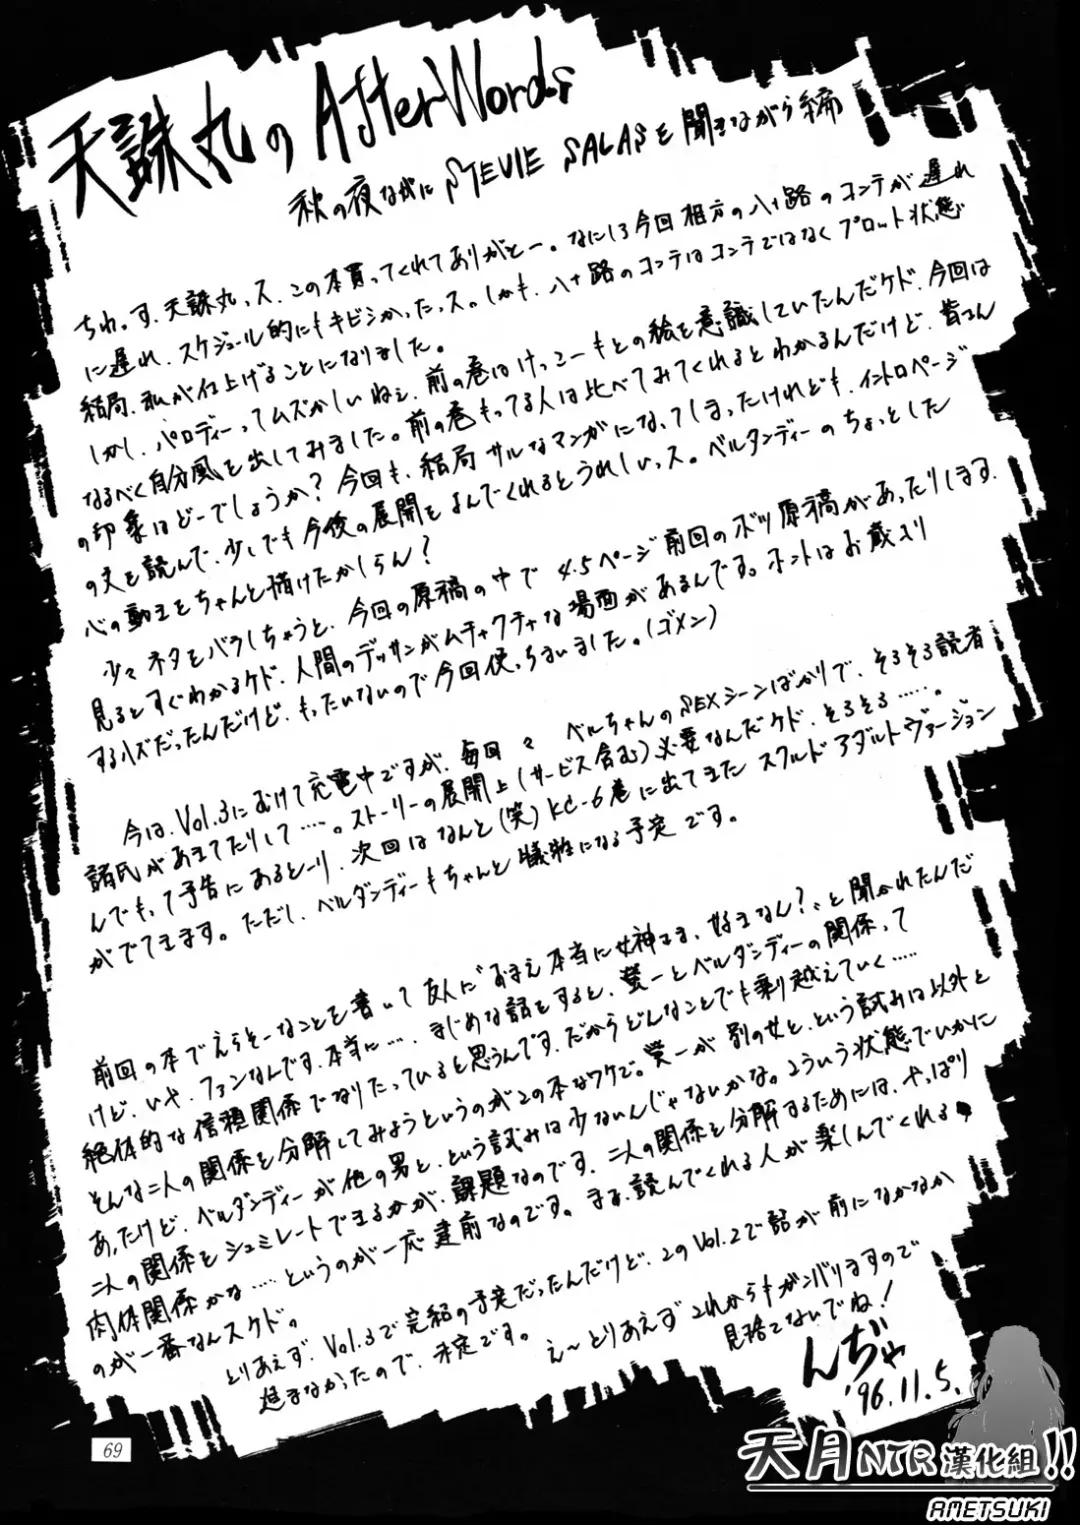 天誅丸のAfterWords
秋の夜ながにSTEVIE SALASを聞きながら編
ちわっす、天誅丸っス、この本買ってくれてありがとー。なにしろ今回相方の八十路のコンテが遅れ
に遅れ、スケジュール的にもキビシかったっス。しかも、八十路のコンテはコンテではなくプロット状態
結局、私が仕上げることになりました。
しかし、パロディーってムズかしいねぇ、前の巻はけっこーもとの絵を意識していたんだケド、今回は
なるべく自分風を出してみました。前の巻もってる人は比べてみてくれるとわかるんだけど、皆さん
の印象はどーでしょうか?今回も、結局サルなマンガになってしまったけれども、イントロページ
の文を読んで、少しでも今後の展開をよんでくれるとうれしいっス。ベルダンディーのちょっとした
心の動きをちゃんと描けたかしらん?
少々ネタをバラしちゃうと、今回の原稿の中で4.5ページ前回のボツ原稿があったりします.
見るとすぐわかるケド、人間のデッサンがムチャクチャな場面があるんです。ホントはお蔵入り
するハズだったんだけど、もったいないので今回使っちまいました。(ゴメン)
今は、Vol.3にむけて充電中ですが、毎回々ベルちゃんのSEXシーンばかりで、そろそろ読者
諸氏があきてたりして……。ストーリーの展開上(サービス含む)必要なんだケド、そろそろ……。
んでもって予告にあるとーり、次回はなんと(笑)KC-6巻に出てきたスクルドアダルトヴァージョン
がでてきます。ただし、ベルダンディーもちゃんと犠牲になる予定です。
前回の本でえらそーなことを書いて友人に"おまえ本当に女神さま、好きなん?"と聞かれたんだ
けど、いや、ファンなんです、本当に…、まじめな話をすると、螢一とベルダンディーの関係って
絶体的な信頼関係でなりたっていると思うんです、だからどんなことでも乗り越えていく……
そんな二人の関係を分解してみようというのがこの本なワケで。螢一が別の女と、という試みは以外と
あったけど、ベルダンディーが他の男と、という試みは少ないんじゃないかな。こういう状態でいかに
二人の関係をシュミレートできるかが、課題なのです、二人の関係を分解するためには、やっぱり
肉体関係かな……というのが一応建前なのです。まぁ、読んでくれる人が楽しんでくれる
のが一番なんスケド。
とりあえず、Vol.3で完結の予定だったんだけど、このVol.2で話が前になかなか
進まなかったので、未定です。
え〜とりあえずこれからもガンバりますので
見捨てないでね!
んぢゃ
'96.11.5.
69
天月NTR漢化組!!
AMETSUKI